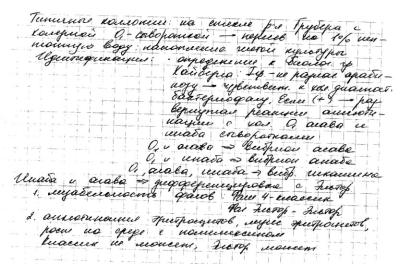 Типичные колонии на стекле р-я Грубера с
холерной О-сывороткой → пересев на 1% пеп-
тонную воду накопление чистой культуры
Идентификация: определение к биолог. гр
Хейберга: I гр - не разлаг араби-
нозу → чувствит. к хол диагност.
бактериофагу. Если (+) → раз-
вернутая реакция агглюти-
нации с хол. О, агава и
инаба сыворотками
О, и агава → вибрион агава
О, и инаба → вибрион инаба
О, агава, инаба → вибр. хикошима
Инаба и агава → дифференцировка с Эльтор
1. лизабельность фагов Фаг 4 - классик
Фаг Эльтор - Эльтор
2. агглютинация эритроцитов, лизис эритроцитов,
рост на среде с полимиксином
классик не может, Эльтор может